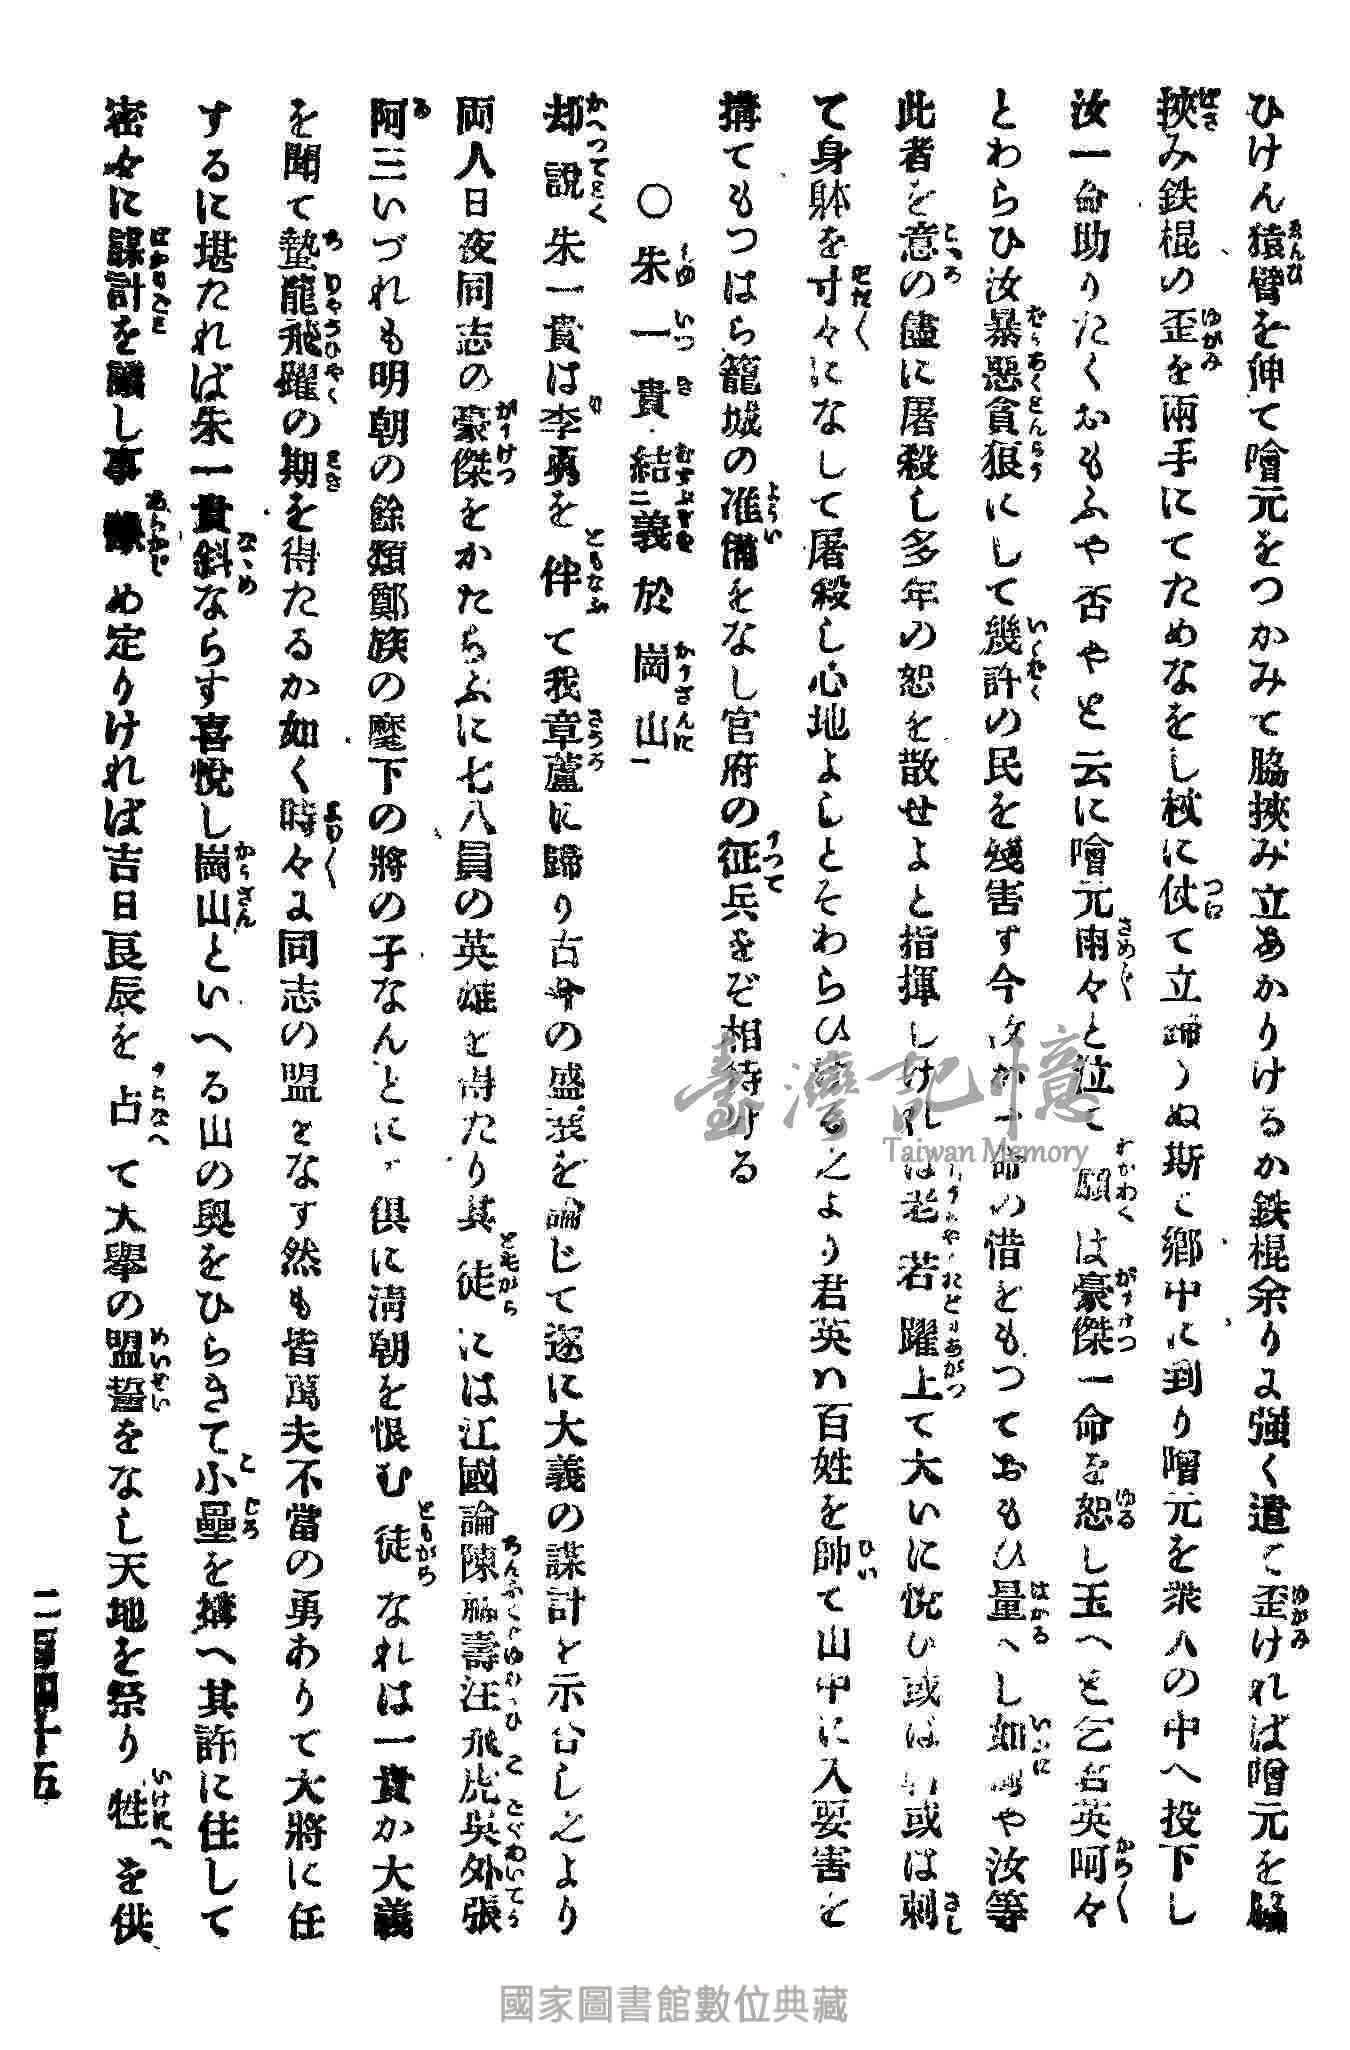 ひけん猿臂を伸て噲元をつかみて脇挾み立あかりけるか鉄棍余りに强く遣て歪けれは噲元を脇
挾み鉄棍の歪を兩手にてためなをし杖に仗て立歸りぬ斯て鄕中に到り噲元を衆人の中へ投下し
汝一命助りたくおもふや否やと云に噲元雨々と泣て願は豪傑一命を恕し玉へと乞君英呵々
とわらひ汝暴惡貪狼にして幾許の民を殘害す今汝か一命の惜をもつておもひ量へし如何や汝等
此者を意の儘に屠殺し多年の恕を散せよと指揮しけれは老若躍上て大いに悅ひ或は斬或は刺
て身躰を寸々になして屠殺し心地よしとそわらひける之より君英ハ百姓を帥て山中に入要害を
搆てもつはら籠城の准備をなし官府の征兵をぞ相待ける
〇朱一貴結二義於崗山一
却說朱一貴は李勇を伴て我章蘆に歸り古今の盛衰を論じて遂に大義の謀計を示合し之より
両人日夜同志の豪傑をかたらふに七八員の英雄を得たり其徒には江國論陳福壽汪飛虎吳外張
阿三いづれも明朝の餘類鄭族の麾下の將の子なんとにて俱に淸朝を恨む徒なれは一貴か大義
を聞て蟄龍飛躍の期を得たるか如く時々に同志の盟をなす然も皆萬夫不當の勇ありて大將に任
するに堪たれば朱一貴斜ならす喜悅し崗山といへる山の奧をひらきて小壘を搆へ其許に住して
密々に謀計を議し事豫め定りければ吉日良辰を占て大擧の盟誓をなし天地を祭り牲を供
二百四十五
臺灣記憶
Taiwan Memory
國家圖書館數位典藏